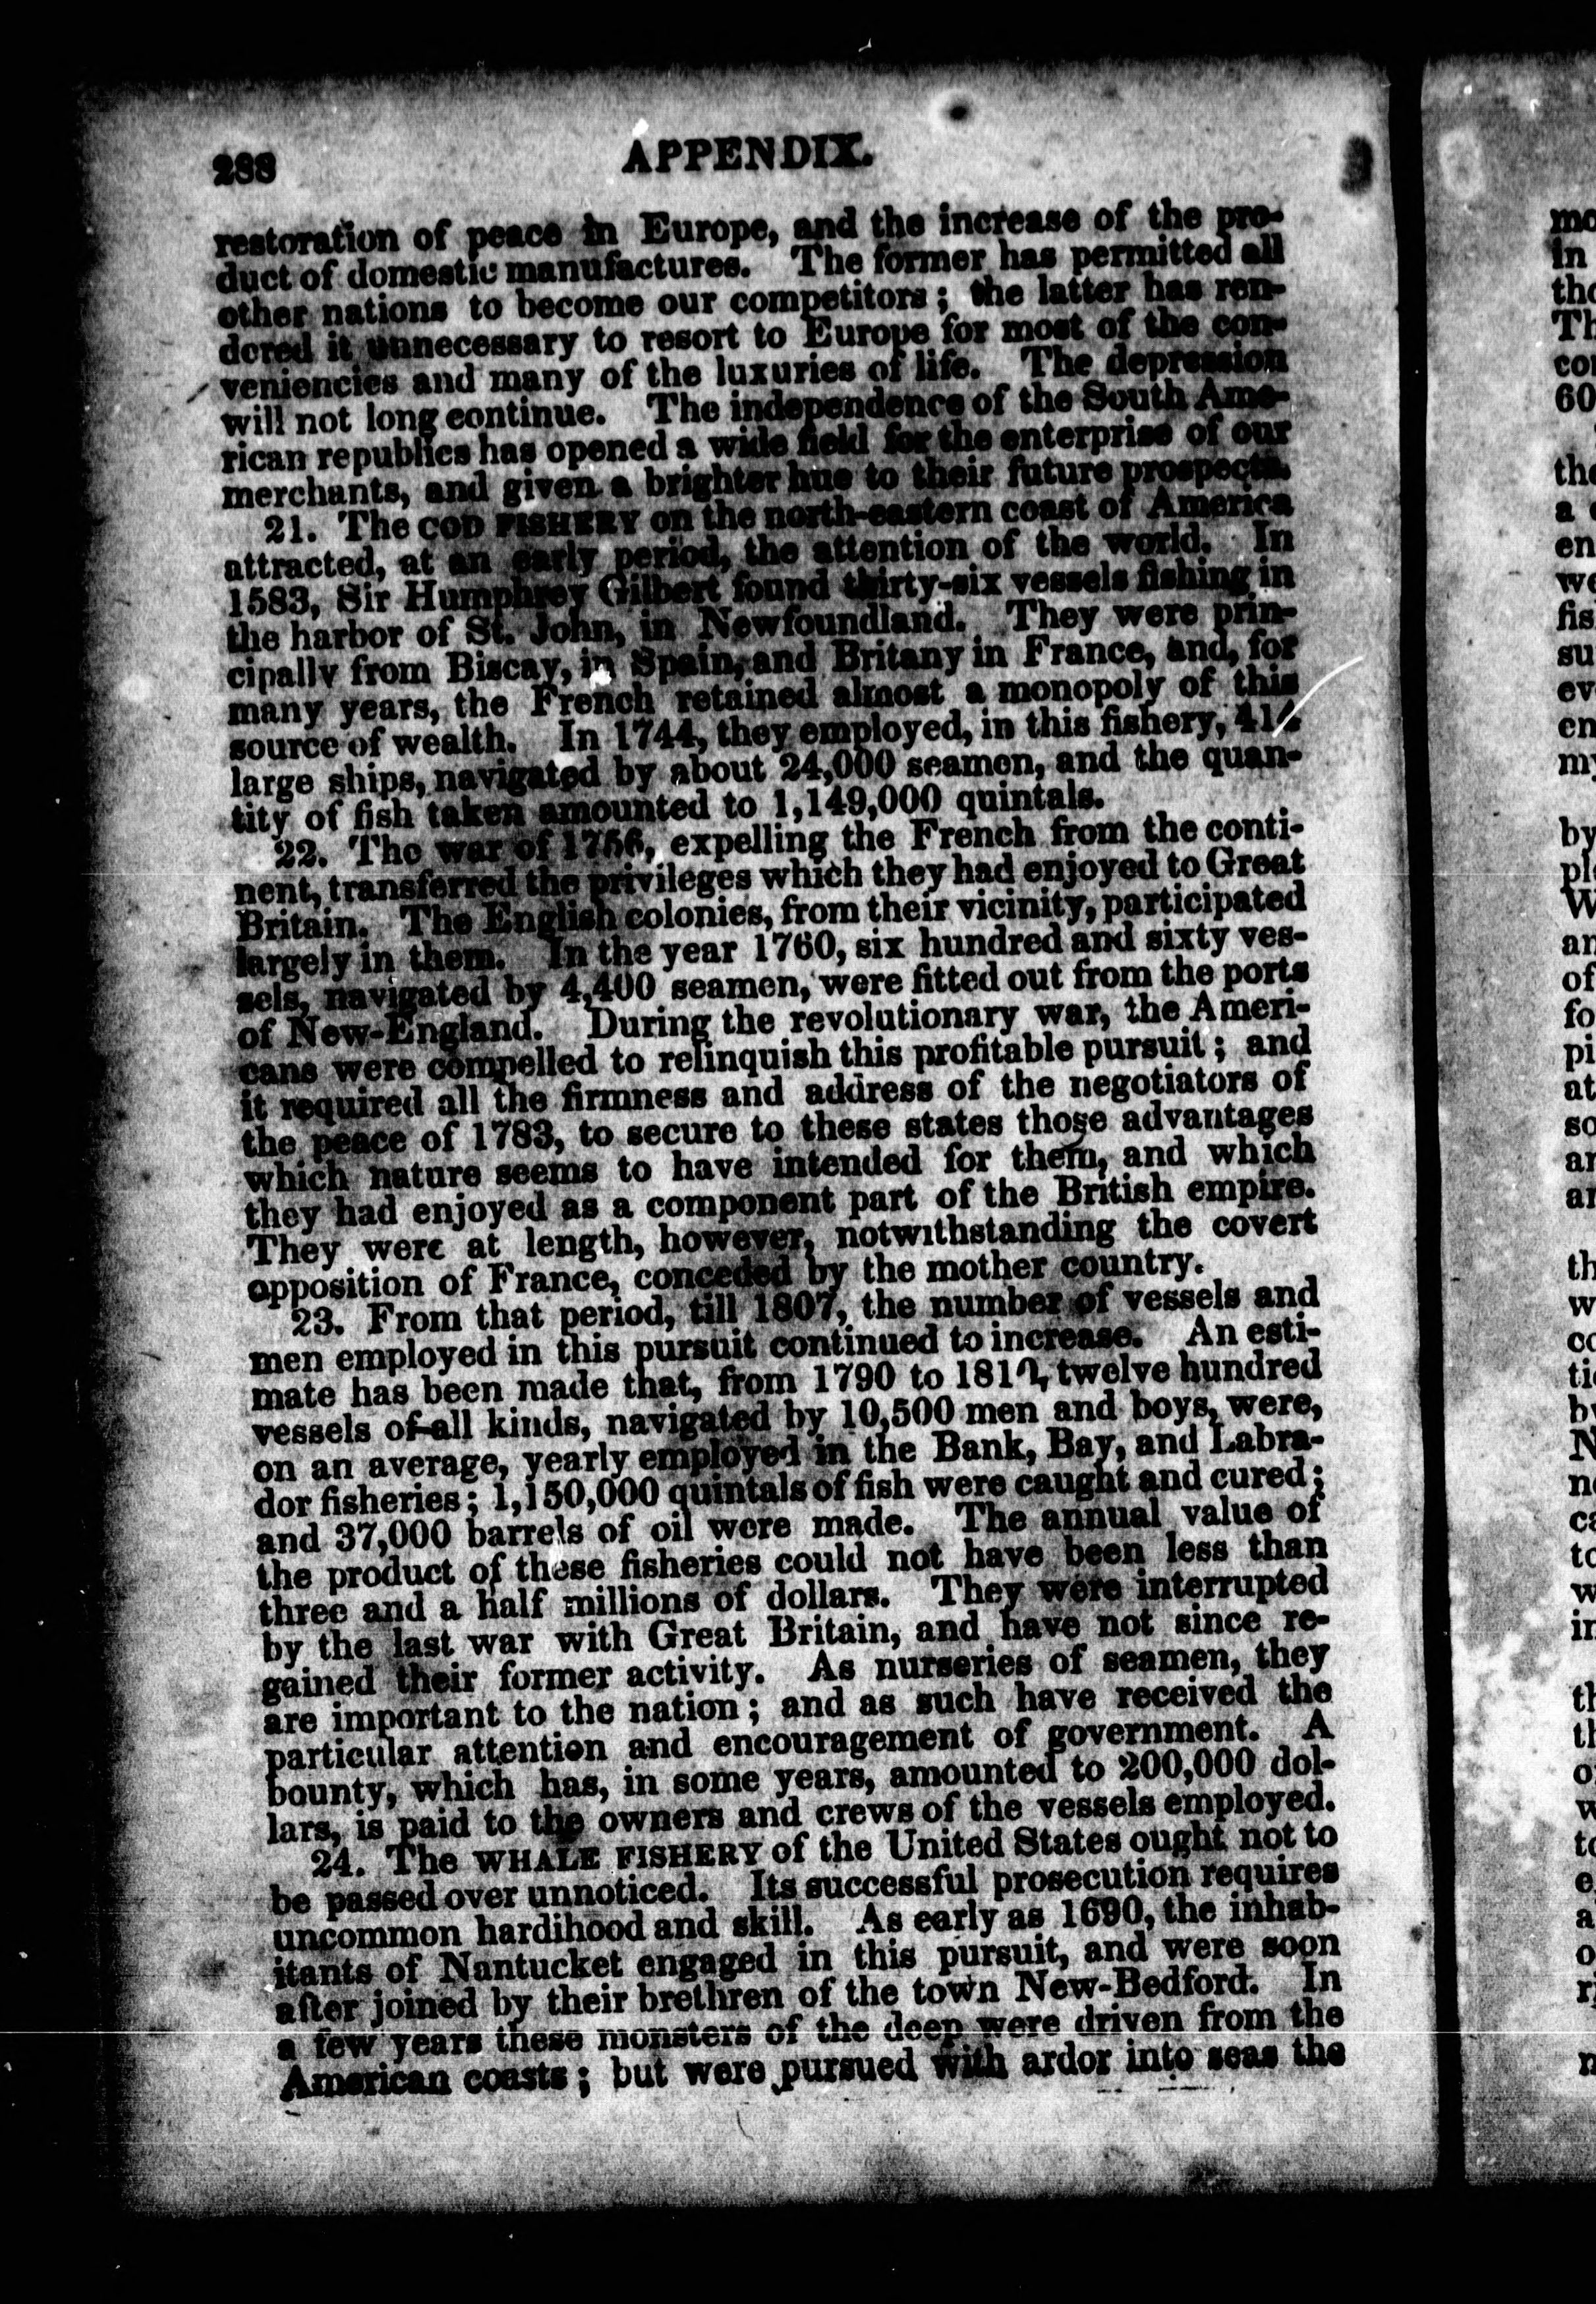 288
APPENDIX.
restoration of peace in Europe, and the increase of the pro-
duct of domestic manufactures. The former has permitted all
other nations to become our competitors; the latter has ren-
dered it unnecessary to resort to Europe for most of the con-
veniencies and many of the luxuries of life. The depression
will not long continue. The independence of the South Ame-
rican republics has opened a wide field for the enterprise of our
merchants, and given a brighter hue to their future prospects.
21. The COD FISHERY on the north-eastern coast of America
attracted, at an early period, the attention of the world. In
1583, Sir Humphrey Gilbert found thirty-six vessels fishing in
the harbor of St. John, in Newfoundland. They were prin-
cipally from Biscay, in Spain, and Britany in France, and, for
many years, the French retained almost a monopoly of this
source of wealth. In 1744, they employed, in this fishery,
large ships, navigated by about 24,000 seamen, and the quan-
tity of fish taken amounted to 1,149,000 quintals.
22. The war of 1756, expelling the French from the conti-
nent, transferred the privileges which they had enjoyed to Great
Britain. The English colonies, from their vicinity, participated
largely in them. In the year 1760, six hundred and sixty ves-
sels, navigated by 4,400 seamen, were fitted out from the ports
of New-England. During the revolutionary war, the Ameri-
cans were compelled to relinquish this profitable pursuit; and
it required all the firmness and address of the negotiators of
the peace of 1783, to secure to these states those advantages
which nature seems to have intended for them, and which
they had enjoyed as a component part of the British empire.
They were at length, however, notwithstanding the covert
opposition of France, conceded by the mother country.
23. From that period, till 1807, the number of vessels and
men employed in this pursuit continued to increase. An esti-
mate has been made that, from 1790 to 1810, twelve hundred
vessels of all kinds, navigated by 10,500 men and boys, were,
on an average, yearly employed in the Bank, Bay, and Labra-
dor fisheries; 1,150,000 quintals of fish were caught and cured;
and 37,000 barrels of oil were made. The annual value of
the product of these fisheries could not have been less than
three and a half millions of dollars. They were interrupted
by the last war with Great Britain, and have not since re-
gained their former activity. As nurseries of seamen, they
are important to the nation; and as such have received the
particular attention and encouragement of government. A
bounty, which has, in some years, amounted to 200,000 dol-
lars, is paid to the owners and crews of the vessels employed.
24. The WHALE FISHERY of the United States ought not to
be passed over unnoticed. Its successful prosecution requires
uncommon hardihood and skill. As early as 1690, the inhab-
itants of Nantucket engaged in this pursuit, and were soon
after joined by their brethren of the town New-Bedford. In
a few years these monsters of the deep were driven from the
American coasts; but were pursued with ardor into seas the